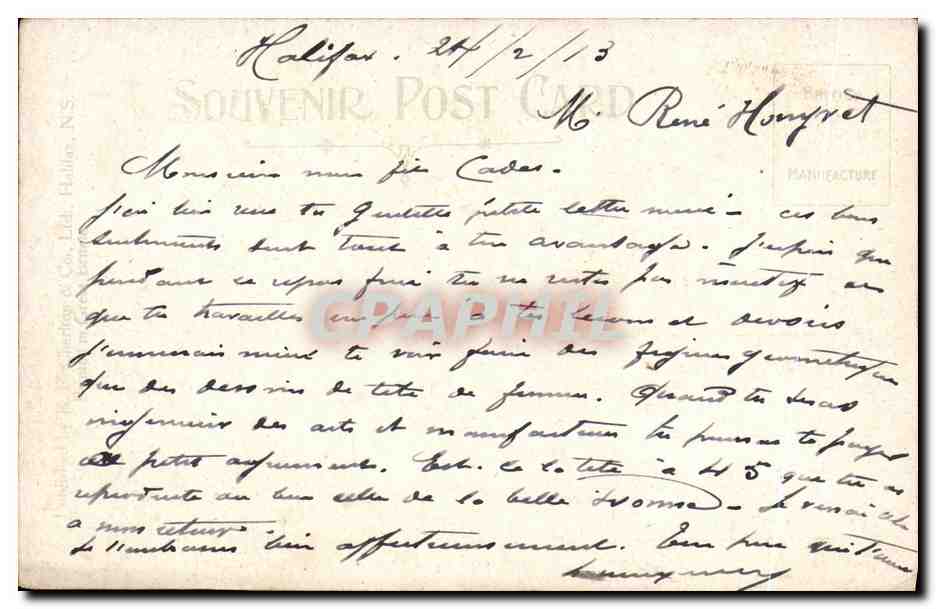 Halifax. 24/2/13
SOUVENIR POST CARD
M. René
MANUFACTURE
Monsieur mon fils Cadet.
J'ai bien reçu ta petite lettre ces bons
sentiments sont tous à ton avantage. J'espère que
pendant ce repos tu ne restes pas et
que tu travailles un peu à tes leçons et devoirs
J'aimerais mieux te voir faire des figures géométriques
que des dessins de tête de femme. Quand tu seras
ingénieur des arts et manufactures tu pourras te payer
ce petit agrément. Est-ce la tête à 45 que tu as
reproduite ou bien celle de la belle Yvonne - Je verrai cela
à mon retour.
Je t'embrasse bien affectueusement. Ton père qui t'aime
CPAPHIL
Halifax, N.S.